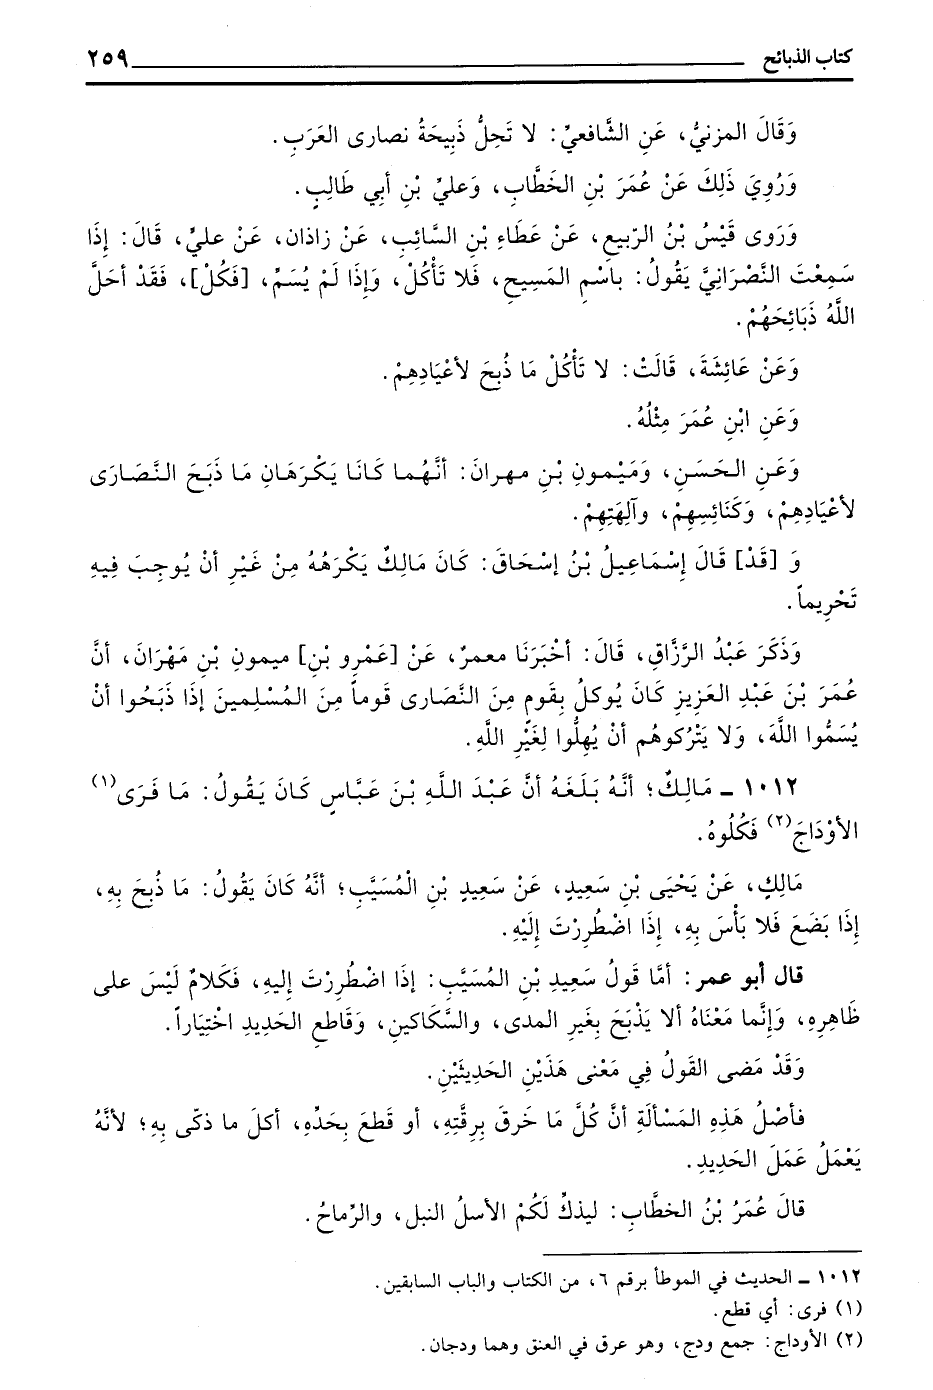 كتاب الذبائح ٢٥٩
وَقَالَ المزنيُّ، عَنِ الشَّافعيِّ: لا تَحِلُّ ذَبِيحَةُ نصارى العَرَبِ.
وَرُوِيَ ذَلِكَ عَنْ عُمَرَ بْنِ الخَطَّابِ، وَعليِّ بْنِ أبي طَالِبٍ.
وَرَوى قَيْسُ بْنُ الرّبيع، عَنْ عَطَاءِ بْنِ السَّائِبِ، عَنْ زاذان، عَنْ عليِّ، قَالَ: إِذَا
سَمِعْتَ النَّصْرَانِيَّ يَقُولُ: باسْمِ المَسِيحِ، فَلا تَأْكُلْ، وَإِذَا لَمْ يُسَمِّ، [فَكُلْ]، فَقَدْ أحَلَّ
اللَّهُ ذَبَائِحَهُمْ.
وَعَنْ عَائِشَةَ، قَالَتْ: لا تَأْكُلْ مَا ذُبِحَ لأعْيَادِهِمْ.
وَعَنِ ابْنِ عُمَرَ مِثْلُهُ.
وَعَنِ الحَسَنِ، وَمَيْمونِ بْنِ مهرانَ: أنَّهُما كَانَا يَكْرَهَانِ مَا ذَبَحَ النَّصَارَى
لأعْيَادِهِمْ، وَكَنَائِسِهِمْ، وآلِهَتِهِمْ.
وَ [قَدْ] قَالَ إِسْمَاعِيلُ بْنُ إسْحَاقَ: كَانَ مَالِكٌ يَكْرَهُهُ مِنْ غَيْرِ أنْ يُوجِبَ فِيهِ
تَحْرِيماً.
وَذَكَرَ عَبْدُ الرَّزَّاقِ، قَالَ: أخْبَرَنَا معمرٌ، عَنْ [عَمْرِو بْنِ] ميمونِ بْنِ مَهْرَانَ، أنَّ
عُمَرَ بْنَ عَبْدِ العَزِيزِ كَانَ يُوكلُ بِقَومٍ مِنَ النَّصَارى قَوماً مِنَ المُسْلِمينَ إذَا ذَبَحُوا أنْ
يُسَمُّوا اللَّهَ، وَلا يَتْرُكوهُم أنْ يُهِلُّوا لِغَيْرِ اللَّهِ.
١٠١٢ - مَالِكٌ؛ أنَّهُ بَلَغَهُ أنَّ عَبْدَ اللَّهِ بْنَ عَبَّاسٍ كَانَ يَقُولُ: مَا فَرَى(١)
الأوْدَاجَ(٢) فَكُلُوهُ.
مَالِكٍ، عَنْ يَحْيَى بْنِ سَعِيدٍ، عَنْ سَعِيدٍ بْنِ الْمُسَيَّبِ؛ أنَّهُ كَانَ يَقُولُ: مَا ذُبِحَ بِهِ،
إِذَا بَضَعَ فَلا بَأْسَ بِهِ، إِذَا اضْطُرِرْتَ إِلَيْهِ.
قال أبو عمر: أمَّا قَولُ سَعِيدِ بْنِ المُسَيَّبِ: إذَا اضْطُرِرْتَ إليهِ، فَكَلامٌ لَيْسَ على
ظَاهِرِهِ، وَإنَّما مَعْنَاهُ ألا يَذْبَحَ بِغَيرِ المدى، والسَّكاكينِ، وَقَاطعِ الحَدِيدِ اخْتِيَاراً.
وَقَدْ مَضى القَولُ فِي مَعْنى هَذَيْنِ الحَدِيثَيْنِ.
فأصْلُ هَذِهِ المَسْألَةِ أنَّ كُلَّ مَا خَرقَ بِرِقَّتِهِ، أو قَطعَ بِحَدِّه، أكلَ ما ذكّى بِهِ؛ لأنَّهُ
يَعْمَلُ عَمَلَ الحَدِيدِ.
قالَ عُمَرُ بْنُ الخطَّابِ: ليذكِّ لَكُمْ الأسلُ النبل، والرِّماحُ.
١٠١٢ - الحديث في الموطأ برقم ٦، من الكتاب والباب السابقين.
(١) فرى: أي قطع.
(٢) الأوداج: جمع ودج، وهو عرق في العنق وهما ودجان.